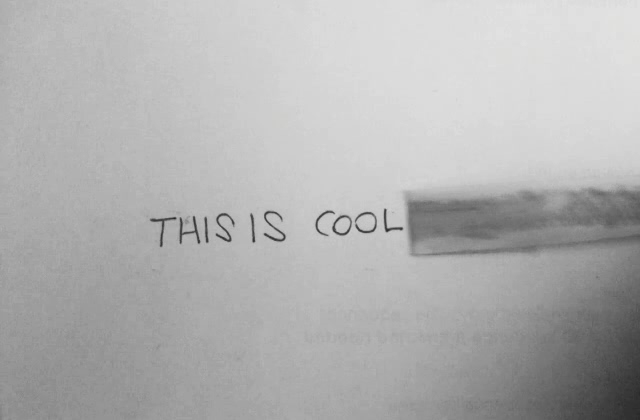 THIS IS COOL